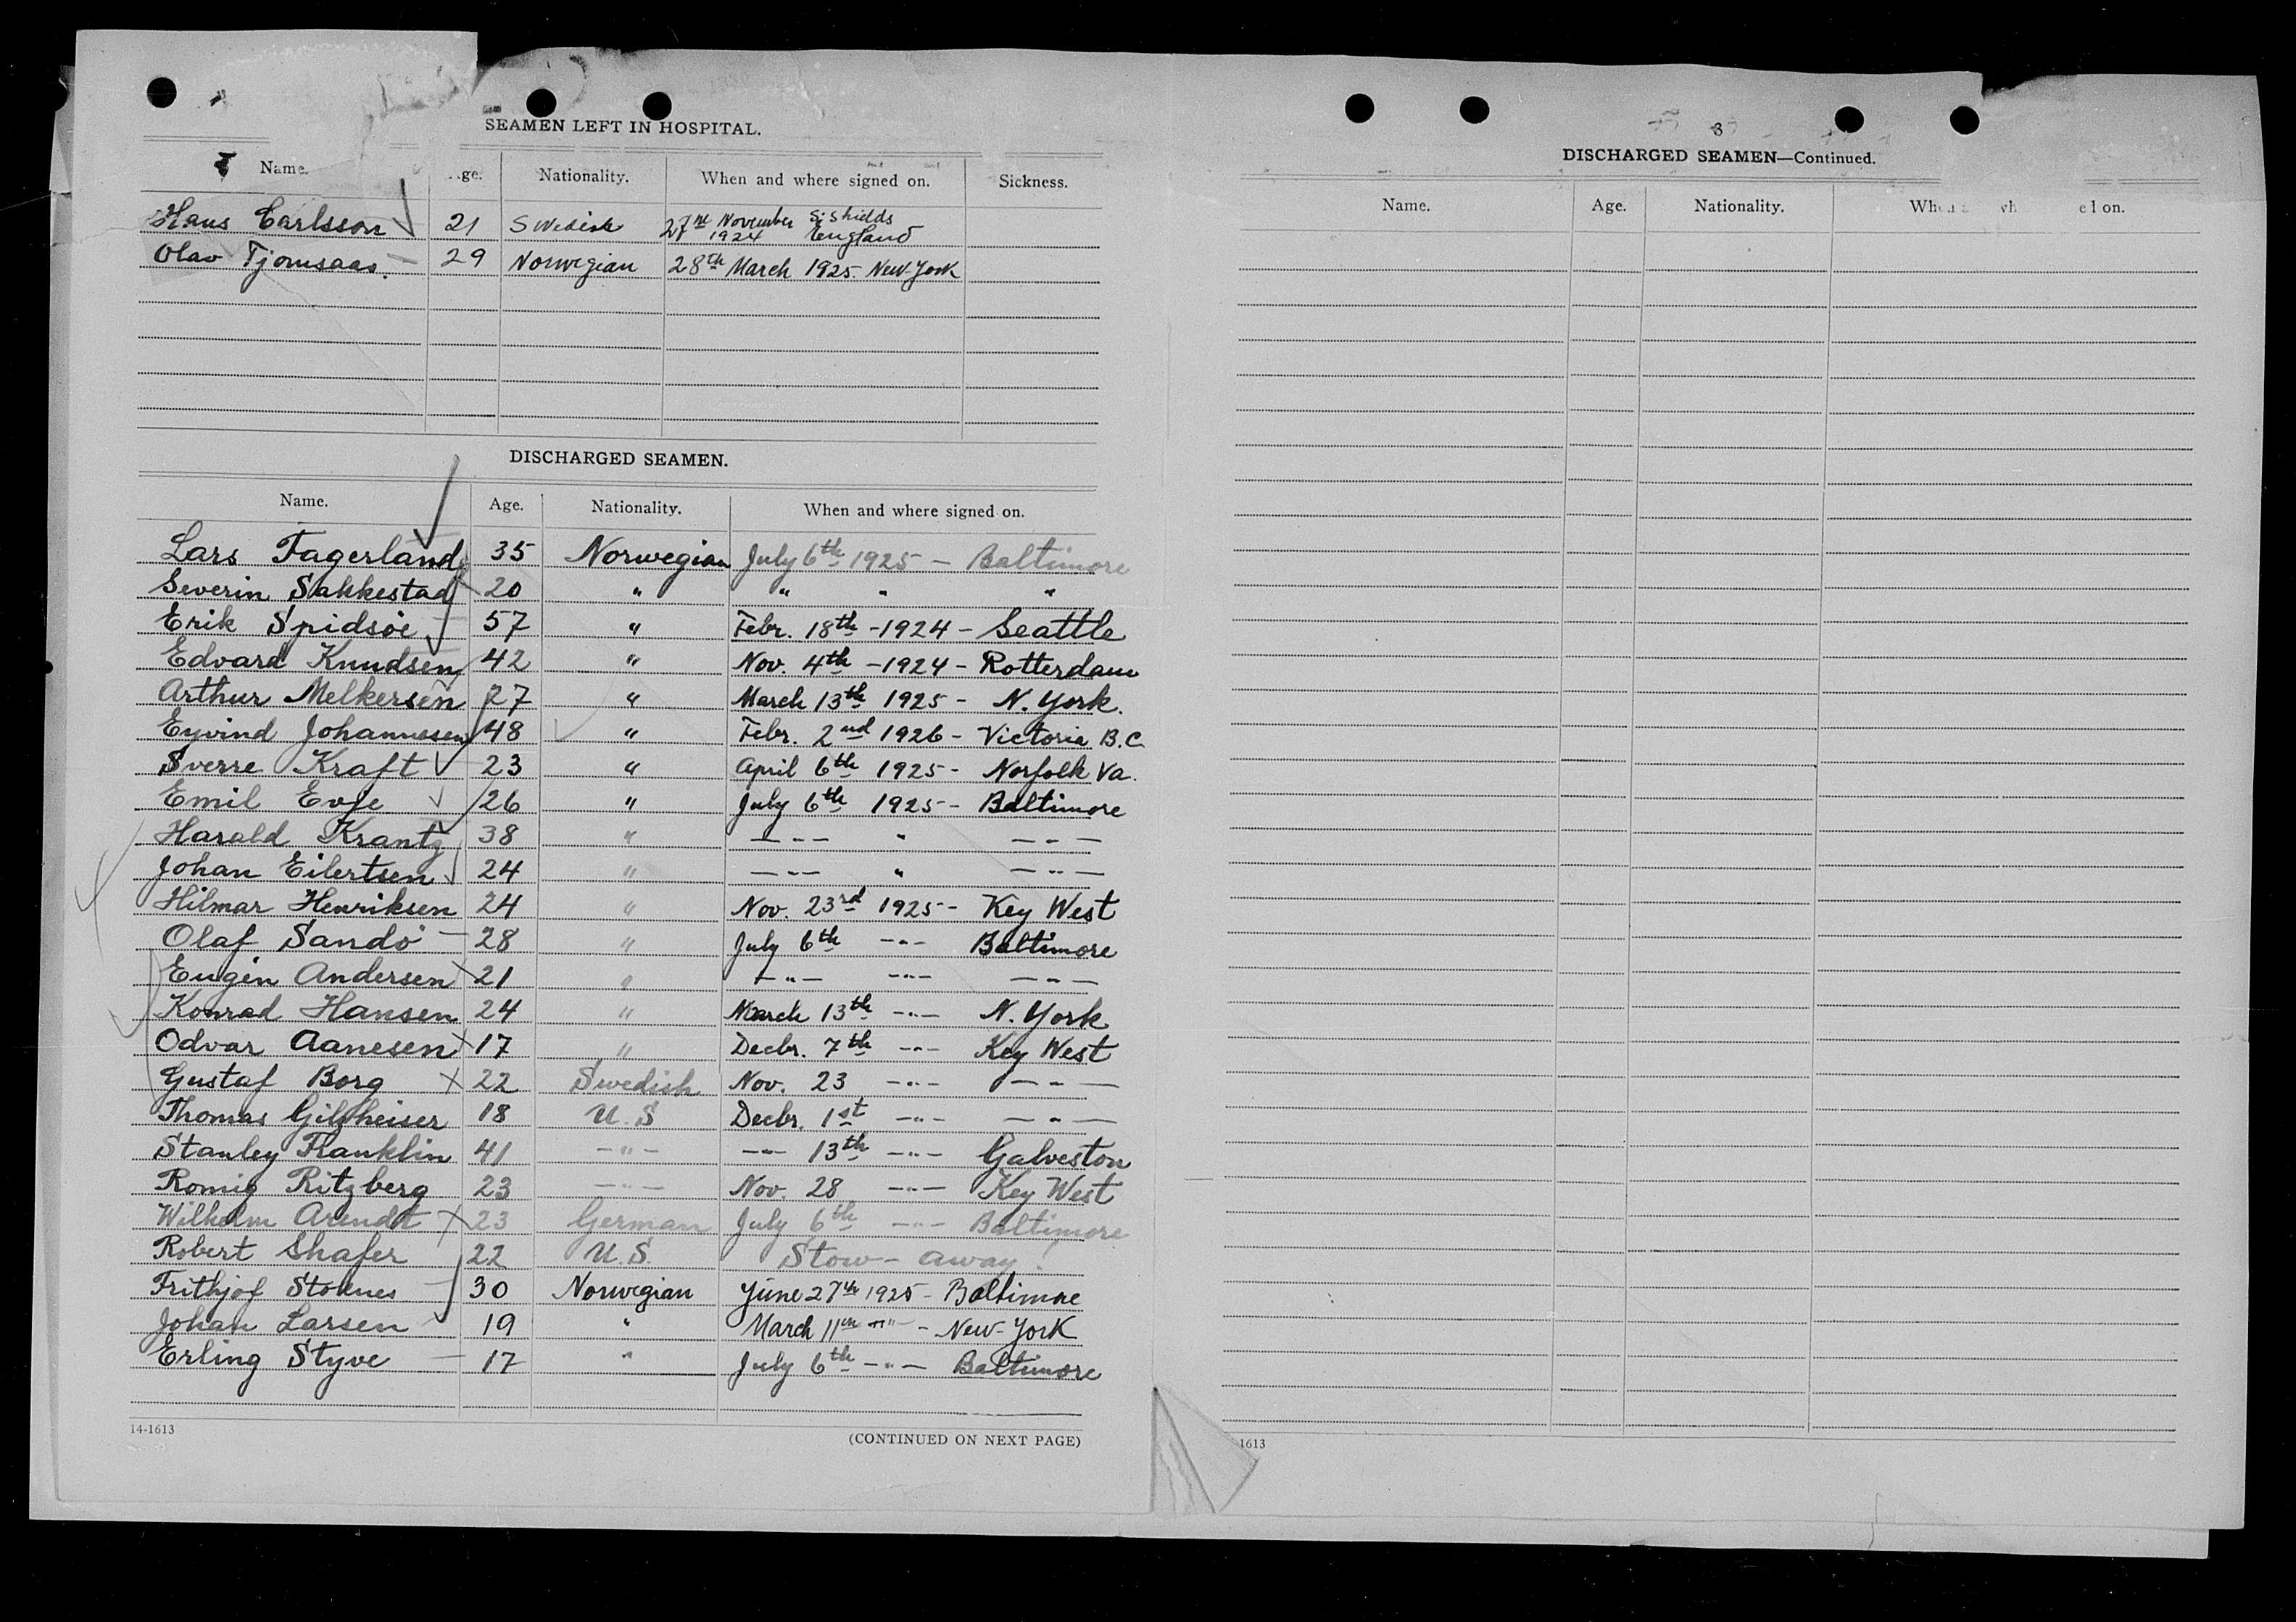 SEAMEN LEFT IN HOSPITAL.
Name. ge. Nationality. When and where signed on. Sickness.
Hans Carlsson 21 Swedish 27th November 1924 S. Shields England
Olav Tjomsaas. 29 Norwegian 28th March 1925. New-York
DISCHARGED SEAMEN.
Name. Age. Nationality. When and where signed on.
Lars Fagerland 35 Norwegian July 6th 1925 — Baltimore
Severin Sakkestad 20 " " " "
Erik Spidsöe 57 " Febr. 18th - 1924 - Seattle
Edvard Knudsen 42 " Nov. 4th - 1924 - Rotterdam
Arthur Melkersen 27 " March 13th 1925 - N. York.
Eyvind Johannessen 48 " Febr. 2nd 1926 - Victoria B.C.
Sverre Kraft 23 " April 6th 1925 - Norfolk Va.
Emil Evje 26 " July 6th 1925 - Baltimore
Harald Krantz 38 " — " — " — " —
Johan Eilertsen 24 " — " — " — " —
Hilmar Henriksen 24 " Nov. 23rd 1925 - Key West
Olaf Sandö 28 " July 6th — " — Baltimore
Eugén Andersen 21 " — " — — " — — " —
Konrad Hansen 24 " March 13th — " — N. York
Odvar Aanesen 17 " Decbr. 7th — " — Key West
Gustaf Borg 22 Swedish Nov. 23 — " — — " —
Thomas 18 U.S Decbr. 1st — " — — " —
Stanley Franklin 41 — " — — " — 13th — " — Galveston
Romig Ritzberg 23 — " — Nov. 28 — " — Key West
Wilhelm Arendt 23 German July 6th — " — Baltimore
Robert Shafer 22 U.S. Stow - away!
Frithjof Stoknes 30 Norwegian June 27th 1925 - Baltimore
Johan Larsen 19 " March 11th — " — - New-York
Erling Styve 17 " July 6th — " — Baltimore
14-1613
(CONTINUED ON NEXT PAGE)
3
DISCHARGED SEAMEN—Continued.
Name. Age. Nationality. on.
1613